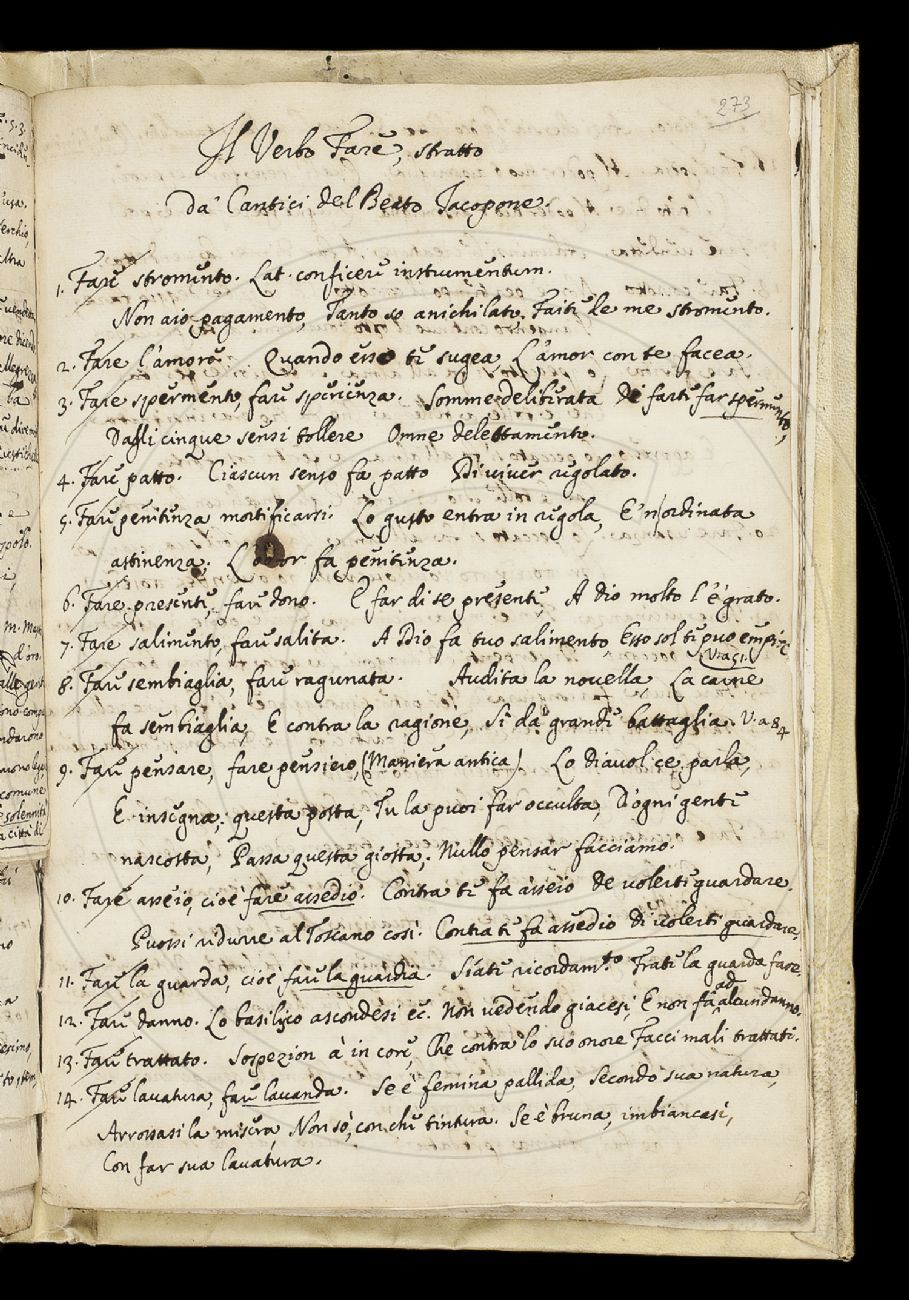 273
Il Verbo Fare, stratto
Da' Cantici del Beato Jacopone.
1. Fare stromento. Lat. conficere instrumentum.
Non aio pagamento, Tanto so anichilato. Faiti de me stromento.
2. Fare l'amore. Quando esso te sugea, L'amor con te facea.
3. Fare spermento, fare sperienza. Somme deliberata De farte far spermento,
Dagli cinque sensi tollere Omne delettamento.
4. Fare patto. Ciascun senso fa patto Di viver regolato.
5. Fare penitenza mortificarsi. Lo gusto entra in regola, E'n ordinata
astinenza; L'odor fa penitenza.
6. Fare presente, fare dono. E far di se presente, A Dio molto l'è grato.
7. Fare salimento, fare salita. A Dio fa tuo salimento, Esso sol te puo empire
V. a 51.
8. Fare sembiaglia, fare ragunata. Audita la novella, La carne
fa sembiaglia, E contra la ragione, Si dà grande battaglia. V. a 84
9. Fare pensare, fare pensiero, (Maniera antica) Lo diavol ce parla,
E insegna; questa posta, Tu la puoi far occulta, D'ogni gente
nascosta; Passa questa giosta; Nullo pensar facciamo.
10. Fare asseio, cioè fare assedio. Contra te fa asseio De volerte guardare.
Puossi ridurre al Toscano così. Contra te fa assedio di volerti guardare.
11. Fare la guarda, cioè fare la guardia. Siate ricordam.to Frate la guarda fare.
12. Fare danno. Lo basilisco ascondesi ec. Non vedendo giacesi, E non fa ad alcun danno.
13. Fare trattato. Sospezion à in core, Che contra lo suo onore Facci mali trattati.
14. Fare lavatura, fare lavanda. Se è femina pallida, Secondo sua natura,
Arrossasi la misera, Non sò, con che tintura. Se è bruna, imbiancasi,
Con far sua lavatura.